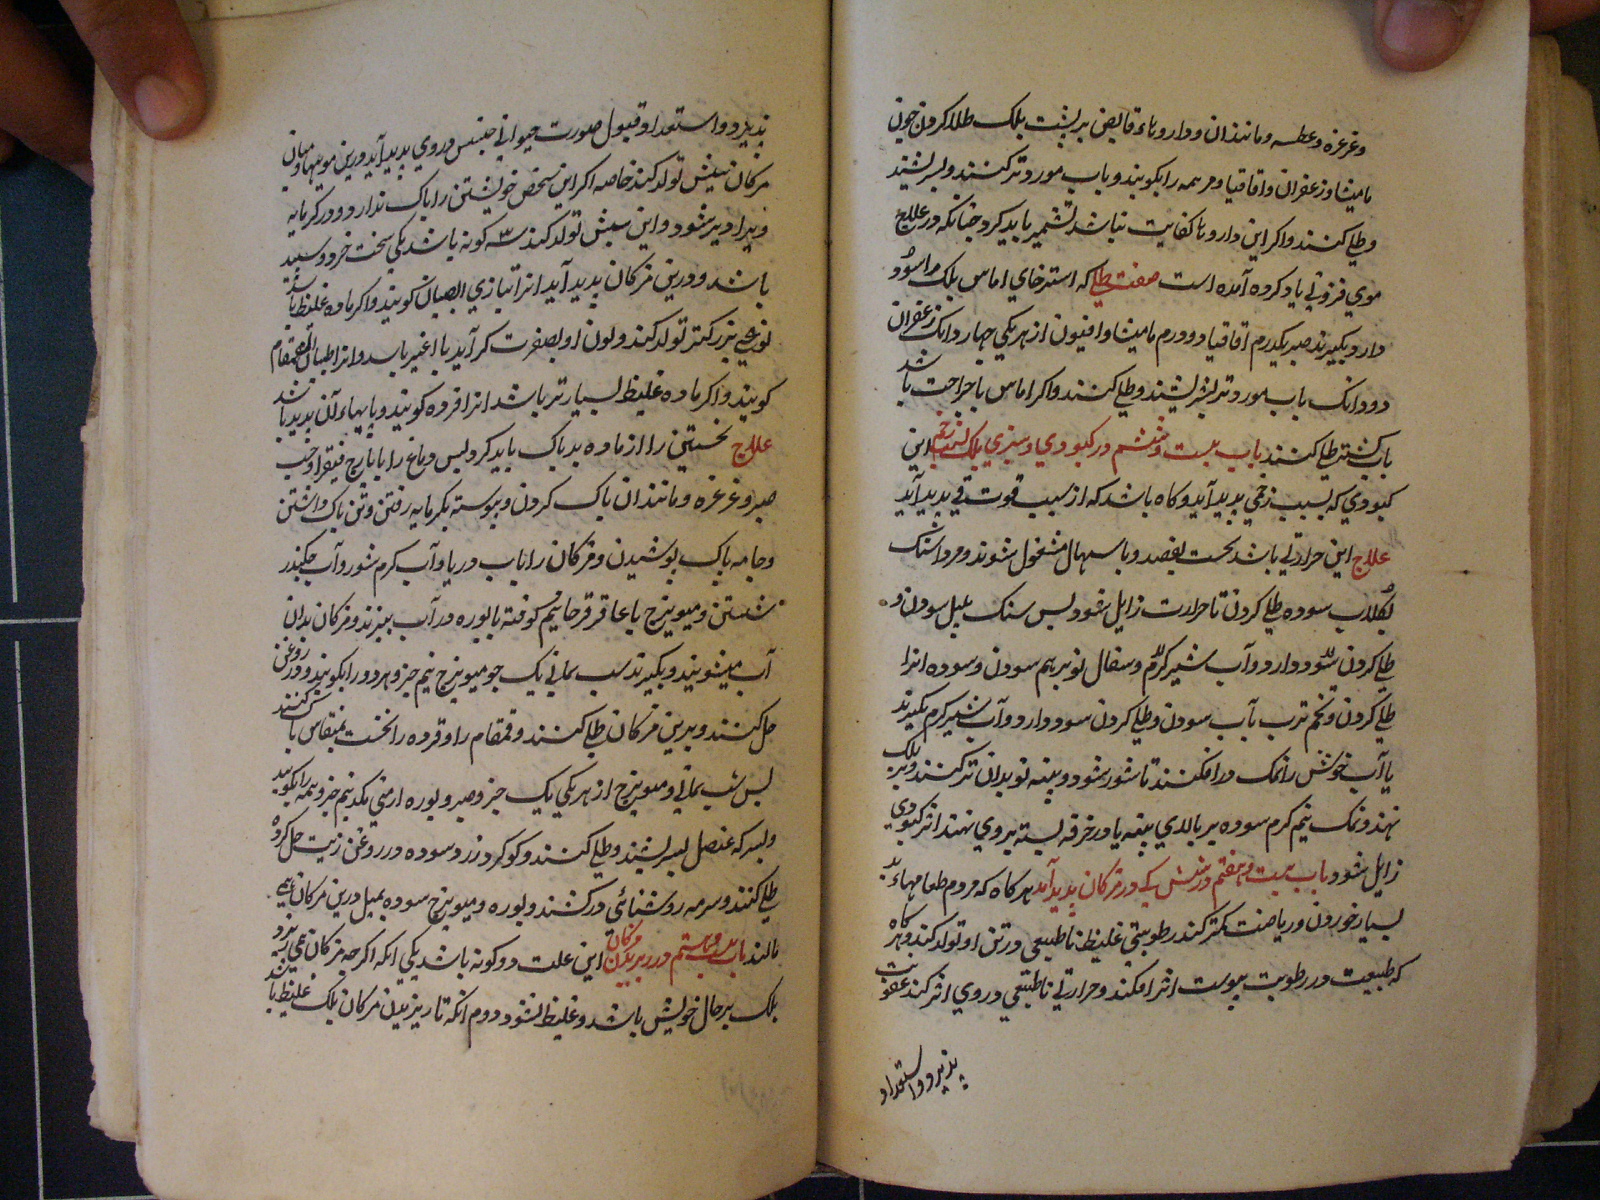 وغرغره وعطسه ومانند ان و داروهاء قابض بر پشت پلک طلا کردن چون
مامیثا و زعفران واقاقیا و مر همه را بکوبند و باب مورد تر کنند و بسرشند
وطلی کنند و اکر این داروها کفایت نباشد تشمیر باید کرد چنانکه در علاج
موی فزونی یاد کرده آمده است صفت طلی که استرخای اماس پلک را سود
دارد بکیرند صبر یکدرم اقاقیا دو درم مامیثا و افیون از هر یکی چهار دانک زعفران
دو دانک باب مورد تر بسرشند و طلی کنند و اکر اماس با جراحت باشد
باب کشنیز طلی کنند باب بیست و ششم در کبودی و سبزی پلک این
کبودی که بسبب زخمی پدید آید و کاه باشد که از سبب قوت قی پدید آید
علاج این حرارتی باشد نخست بفصد و باسهال مشغول شوند و مرداسنک
بکلاب سوده طلی کردن تا حرارت زایل شود پس سنک پلپل سودن و
طلی کردن سود دارد و آب شیر کرم و سفال نو بر هم سودن و سوده انرا
طلی کردن و تخم ترب بآب سودن و طلی کردن سود دارد و آب شیر کرم بکیرند
یا آب خوش را نمک در افکنند تا شور شود و پنبه نو بدان تر کنند و بر پلک
نهند و نمک نیم کرم سوده بر بالای پنبه یا در خرقه بسته بر وی نهند اثر کبودی
زایل شود باب بیست و هفتم در شپش که در مژکان پدید آید هر کاه که مردم طعامهاء بد
بسیار خورد و ریاضت کمتر کند رطوبتی غلیظ ناطبیعی در تن او تولد کند و هرکاه
که طبیعت در رطوبت بپوست اثر افکند و حرارتی ناطبیعی در وی اثر کند عفونت
پذیرد و استعداد
پذیرد و استعداد و قبول صورت حیوانی جنبش در وی پدید آید و در بن مویها و میان
مژکان شپش تولد کند خاصه اکر این شخص خویشتن را پاک ندارد و در کرمابه
دیر شود و این شپش تولد کند سه کونه باشد یکی سخت خرد و سپید
باشد و در بن مژکان پدید آید انرا بتازی الصیبان کویند و اکر ماده غلیظ باشد
نوعی بزرکتر تولد کند و لون او بصفرت کراید یا اغبر باشد و انرا القمقام
کویند و اکر ماده غلیظ بسیارتر باشد انرا قروه کویند و پایهاء آن پدید باشد
علاج نخستین را از ماده بد پاک باید کرد پس دماغ را بایارج فیقرا و حب
صبر و غرغره و مانند ان پاک کردن و پیوسته بکرمابه رفتن و تن پاک داشتن
و جامه پاک پوشیدن و مژکان را باب دریا و آب کرم شور و آب چکندر
شستن و میویزج با عاقرقرحا نیم کوفته با بوره در آب بپزند و مژکان بدان
آب میشویند و بکیرند شب یمانی یک جو میویزج نیم جزو هر دو را بکوبند و در روغن
حل کنند و بر بن مژکان طلی کنند و قمقام را و قروه را نخست بمنقاش پاک کنند
پس شب یمانی و میویزج از هر یکی یک جزو صبر و بوره ارمنی یکدنیم جزو همه را بکوبند
و بسرکه عنصل بسرشند و طلی کنند و کوکرد زرد سوده در روغن زیت حل کرده
طلی کنند و سرمه روشنائی درکشند و بوره و میویزج سوده بمیل در بن مژکان همی
مالند باب بیست و هشتم در ریزیدن مژکان این علت دو کونه باشد یکی انکه اکرچه مژکان همی ریزد
پلک بر حال خویش باشد و غلیظ نشود دوم انکه تا ریزیدن مژکان پلک غلیظ باشد